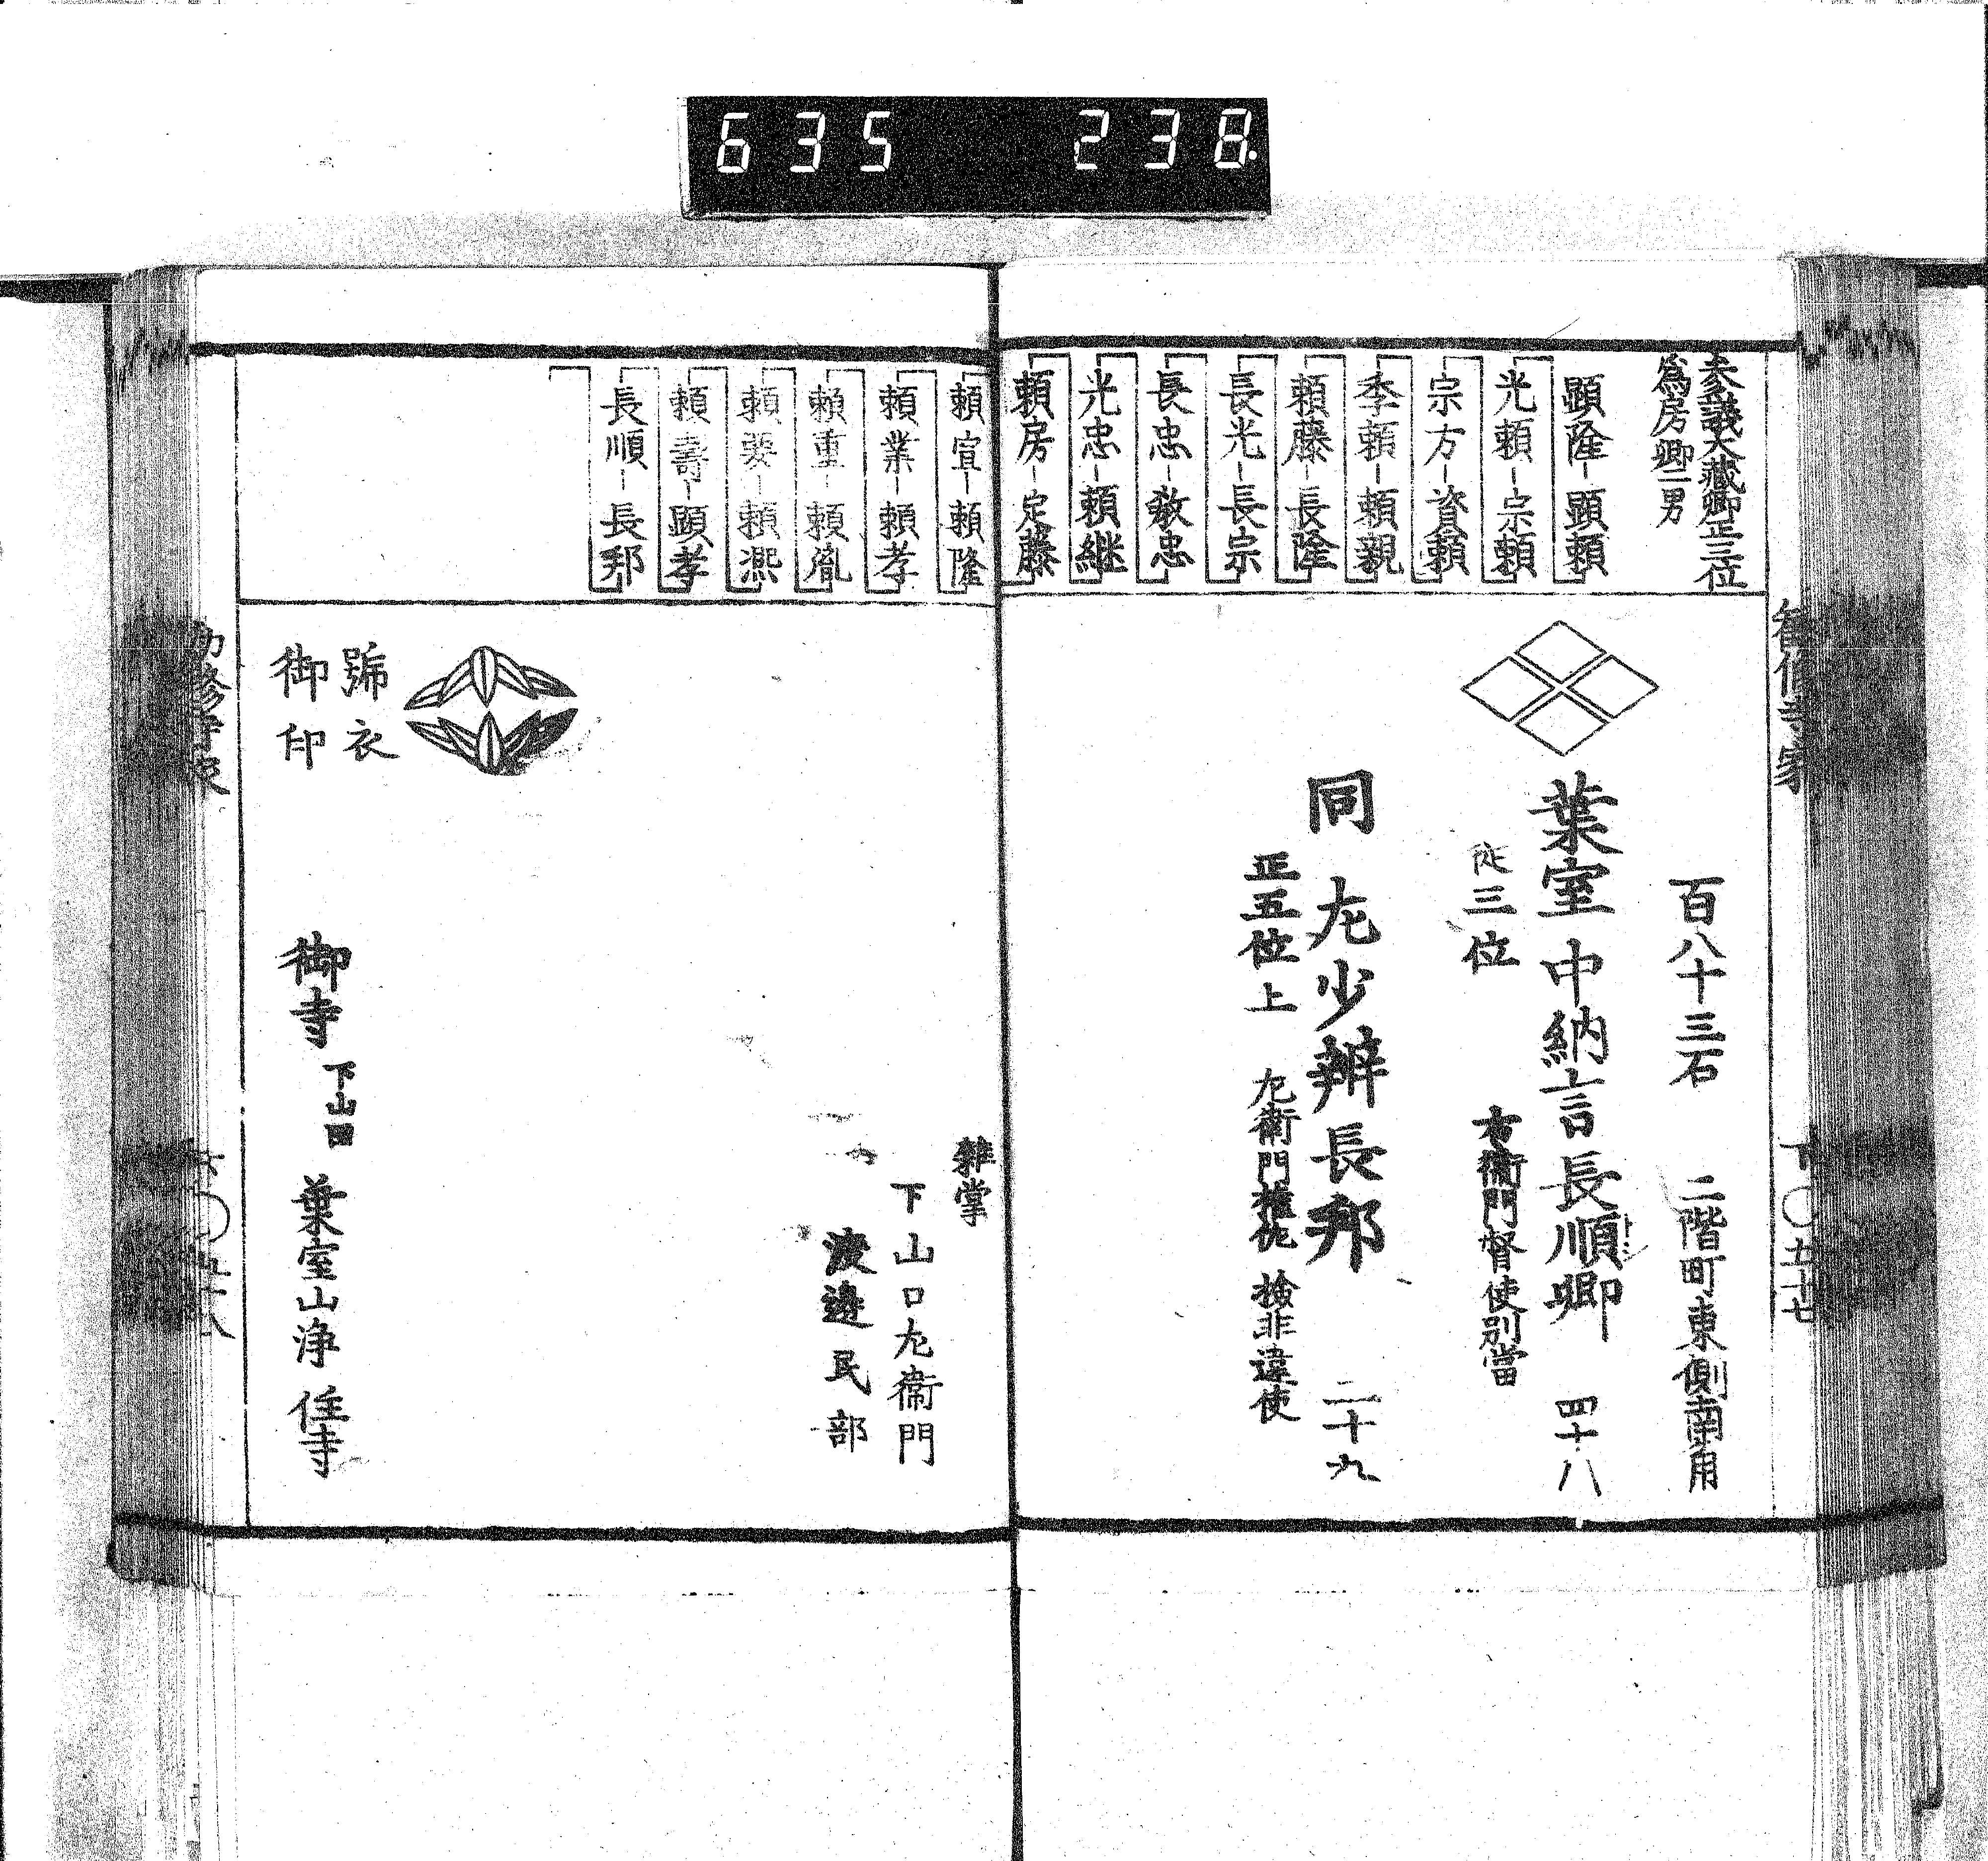 635 238.
勧修寺家
下〇五十七
参議大蔵卿正三位
為房卿二男
顕隆-顕頼
光頼-宗頼
宗方-資頼
季頼-頼親
頼藤-長隆
長光-長宗
長忠-教忠
光忠-頼継
頼房-定藤
百八十三石 二階町東側南角
葉室中納言長順卿 四十八
従三位 右衛門督使別當
同 左少辨長邦 二十九
正五位上 左衛門権佐 検非違使
頼宣-頼隆
頼業-頼孝
頼重-頼胤
頼要-頼熈
頼壽-顕孝
長順-長邦
雑掌
下山口左衛門
渡邊民部
號衣
御印
御寺 下山田 葉室山浄住寺
勧修寺家